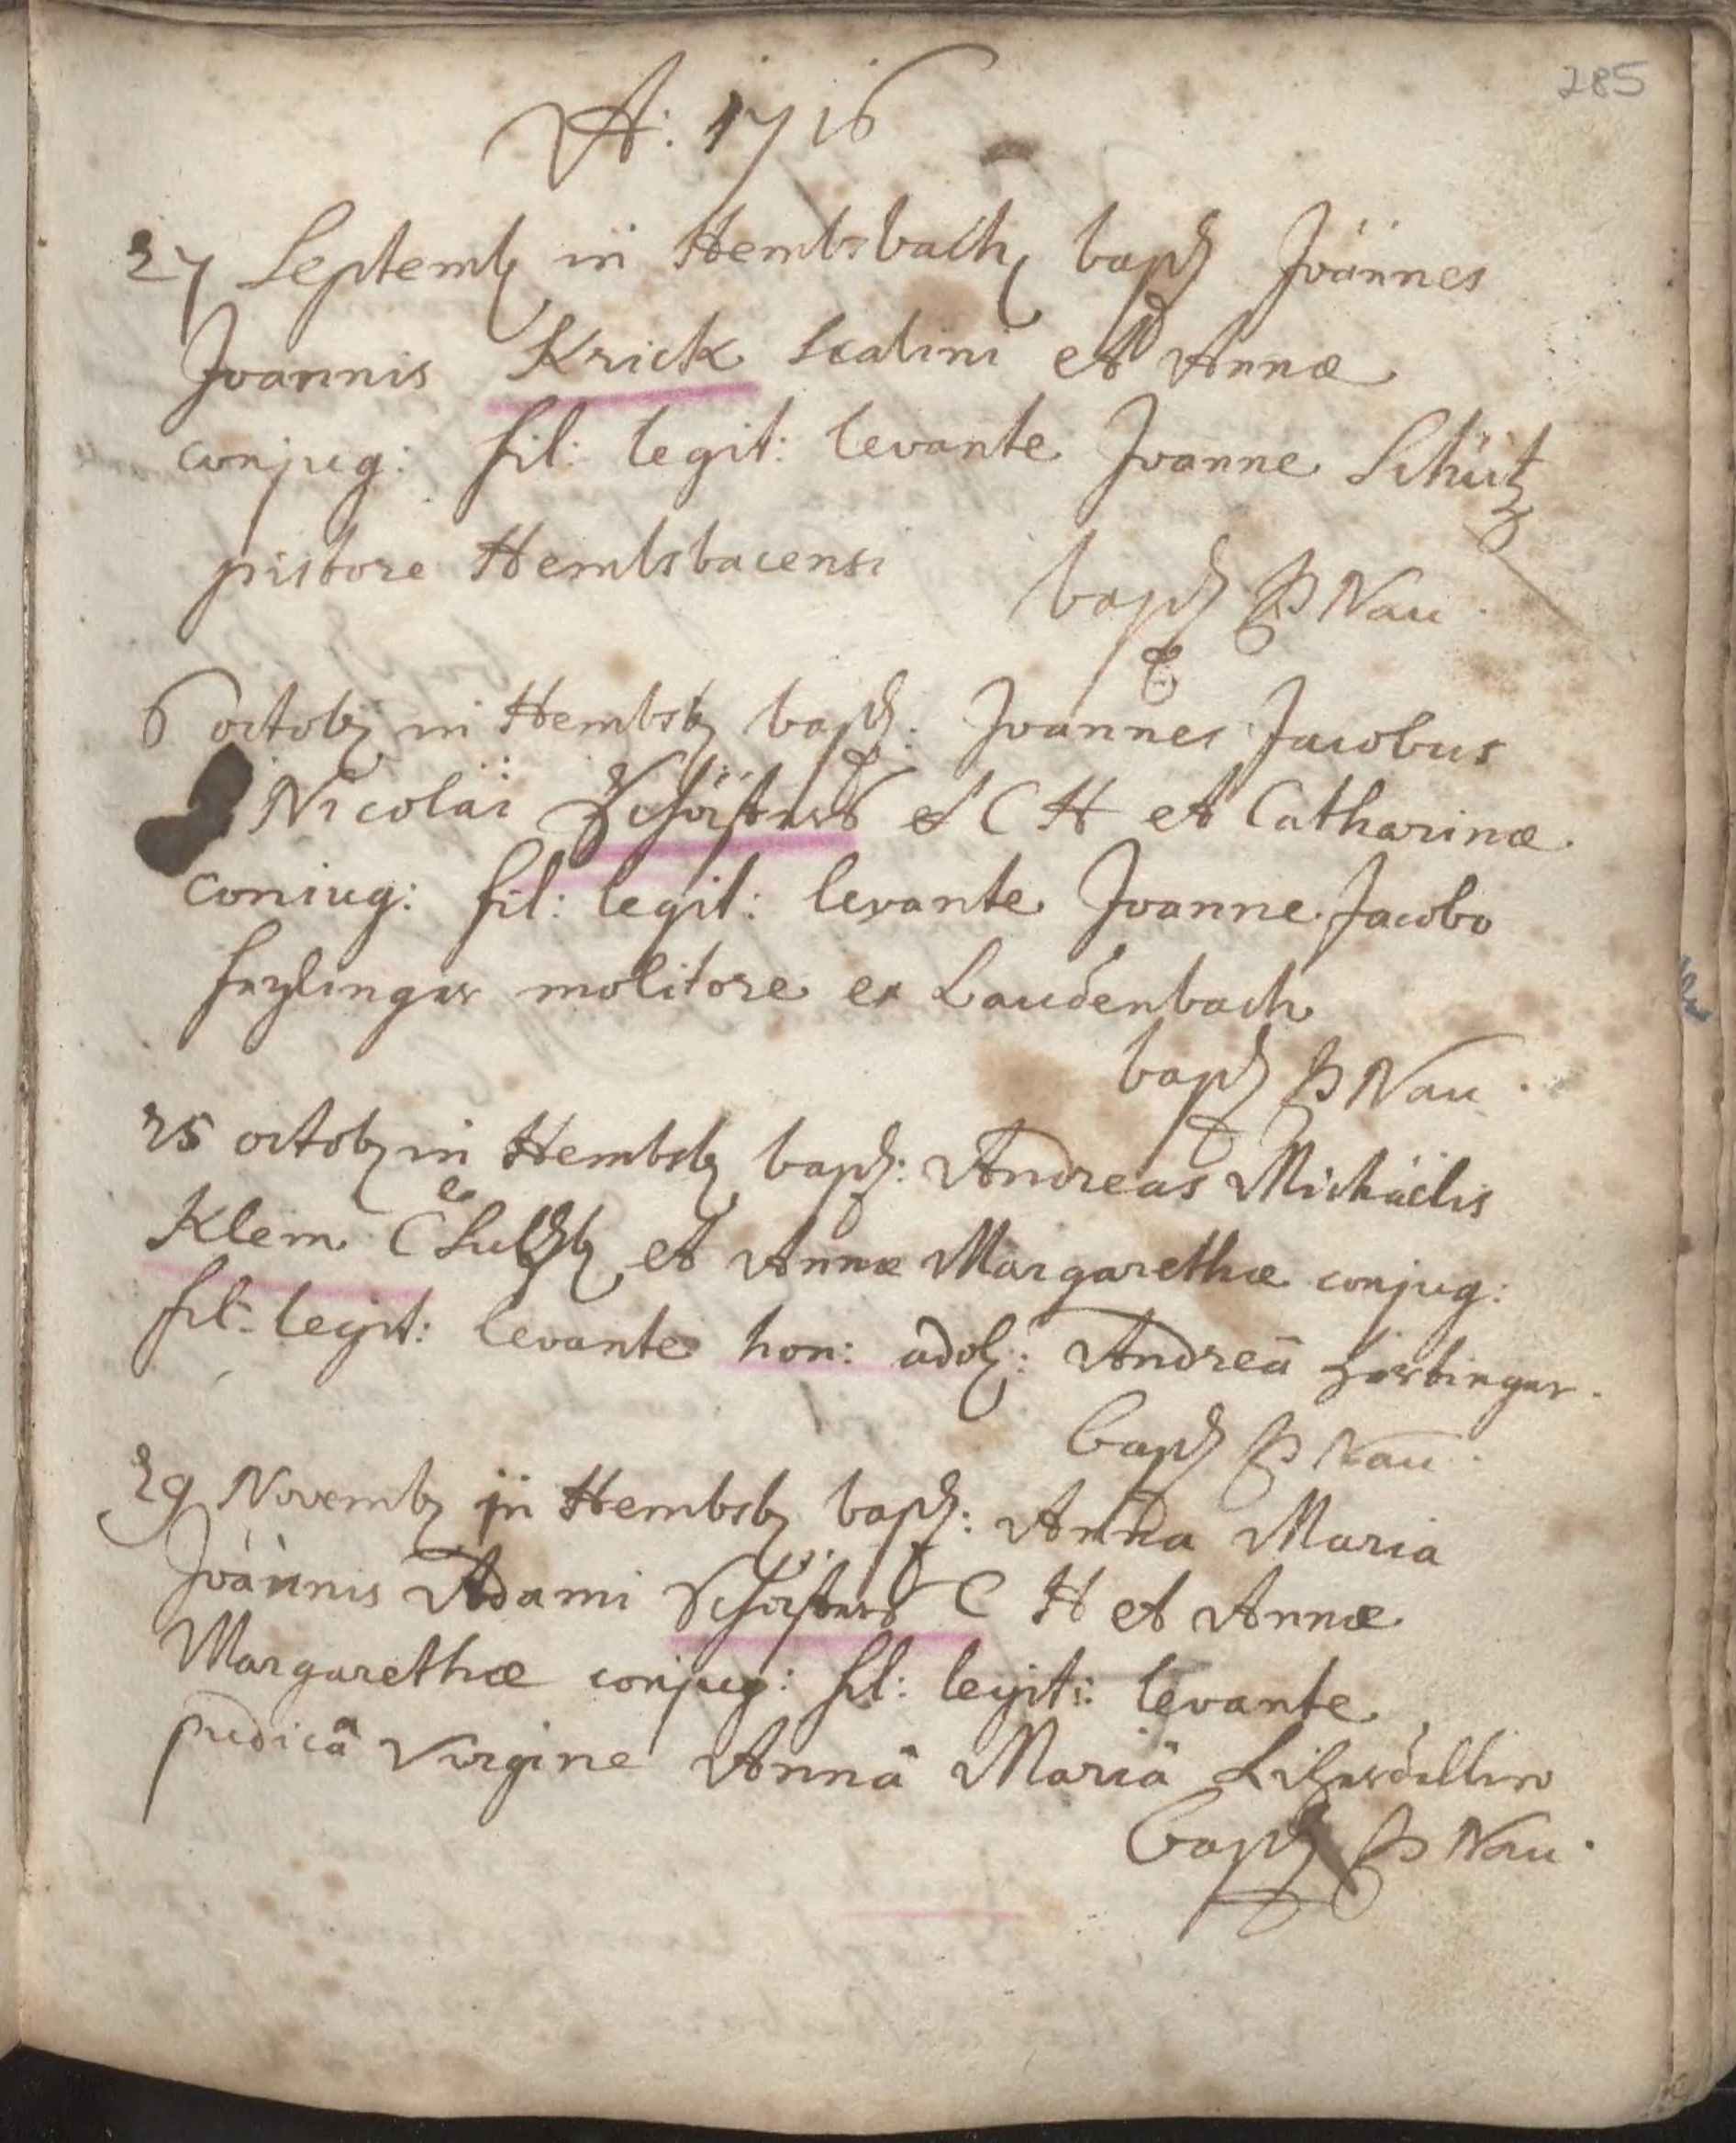 285
A: 1716
27 Septemb in Hembsbach bapt Joannes
Joannis Krick Scabini et Annæ
conjug: fil: legit: levante Joanne Schütz
pistore Hembsbacensi
bapt P Nau
6 octob in Hembsb bapt: Joannes Jacobus
Nicolai C H et Catharinæ
coniug: fil: legit: levante Joanne Jacobo
molitore ex Laudenbach
bapt P Nau
25 octob in Hembsb bapt: Andreas Michäelis
Klem C Sultzb et Annæ Margarethæ conjug:
fil: legit: levante hon: adol: Andreâ
bapt P Nau
29 Novemb in Hembsb bapt: Anna Maria
Joannis Adami C H et Annæ
Margarethæ conjug: fil: legit: levante
pudicâ Virgine Annâ Mariâ
bapt P Nau